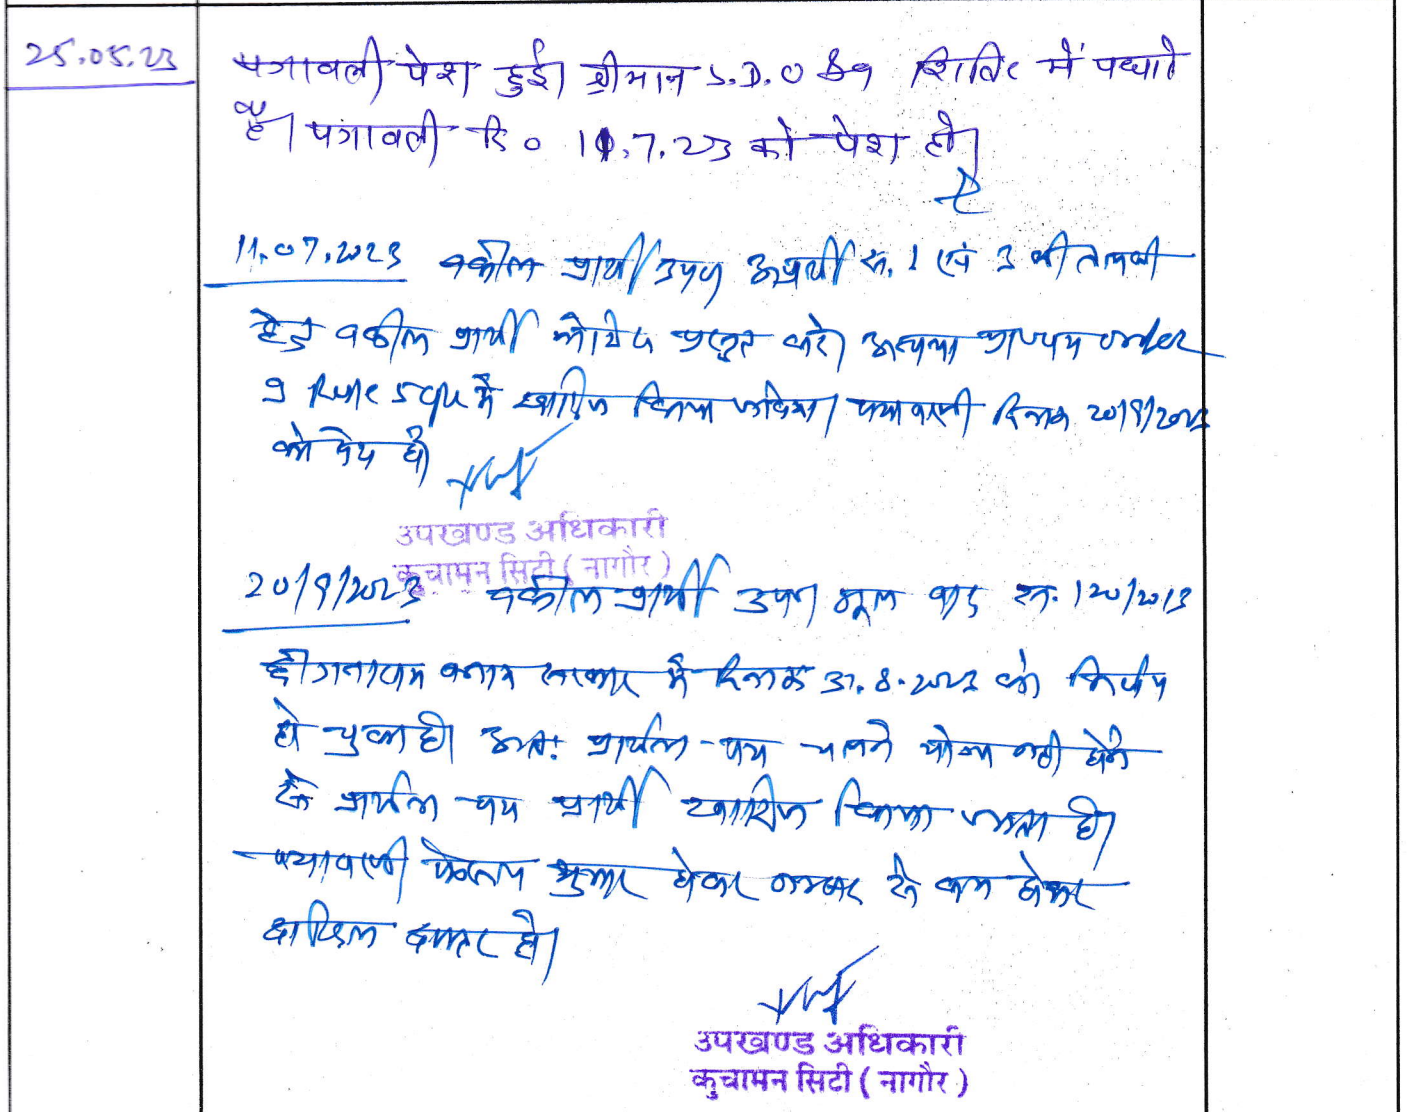 25.05.23
पत्रावली पेश हुई। श्रीमान S.D.O शिविर में पधारे
है। पत्रावली दि० 11.7.23 को पेश हो।
11.07.2023 वकील प्रार्थी उप० अप्रार्थी सं. 1 एवं 3 की तलबी
हेतु वकील प्रार्थी नोटिस प्रस्तुत करे। अन्यथा प्रा० पत्र order
9 Rule 5 CPC में खारिज किया जावेगा। पत्रावली दिनांक 20/9/2023
को पेश हो।
उपखण्ड अधिकारी
कुचामन सिटी ( नागौर )
20/9/2023 वकील प्रार्थी उप० मूल वाद सं. 120/2013
बनाम सरकार में दिनांक 31.8.2023 को निर्णय
हो चुका है। अतः प्रार्थना-पत्र चलने योग्य नहीं होने
से प्रार्थना पत्र प्रार्थी खारिज किया जाता है।
पत्रावली फैसल शुमार होकर नम्बर से कम होकर
दाखिल दफ्तर हो।
उपखण्ड अधिकारी
कुचामन सिटी ( नागौर )